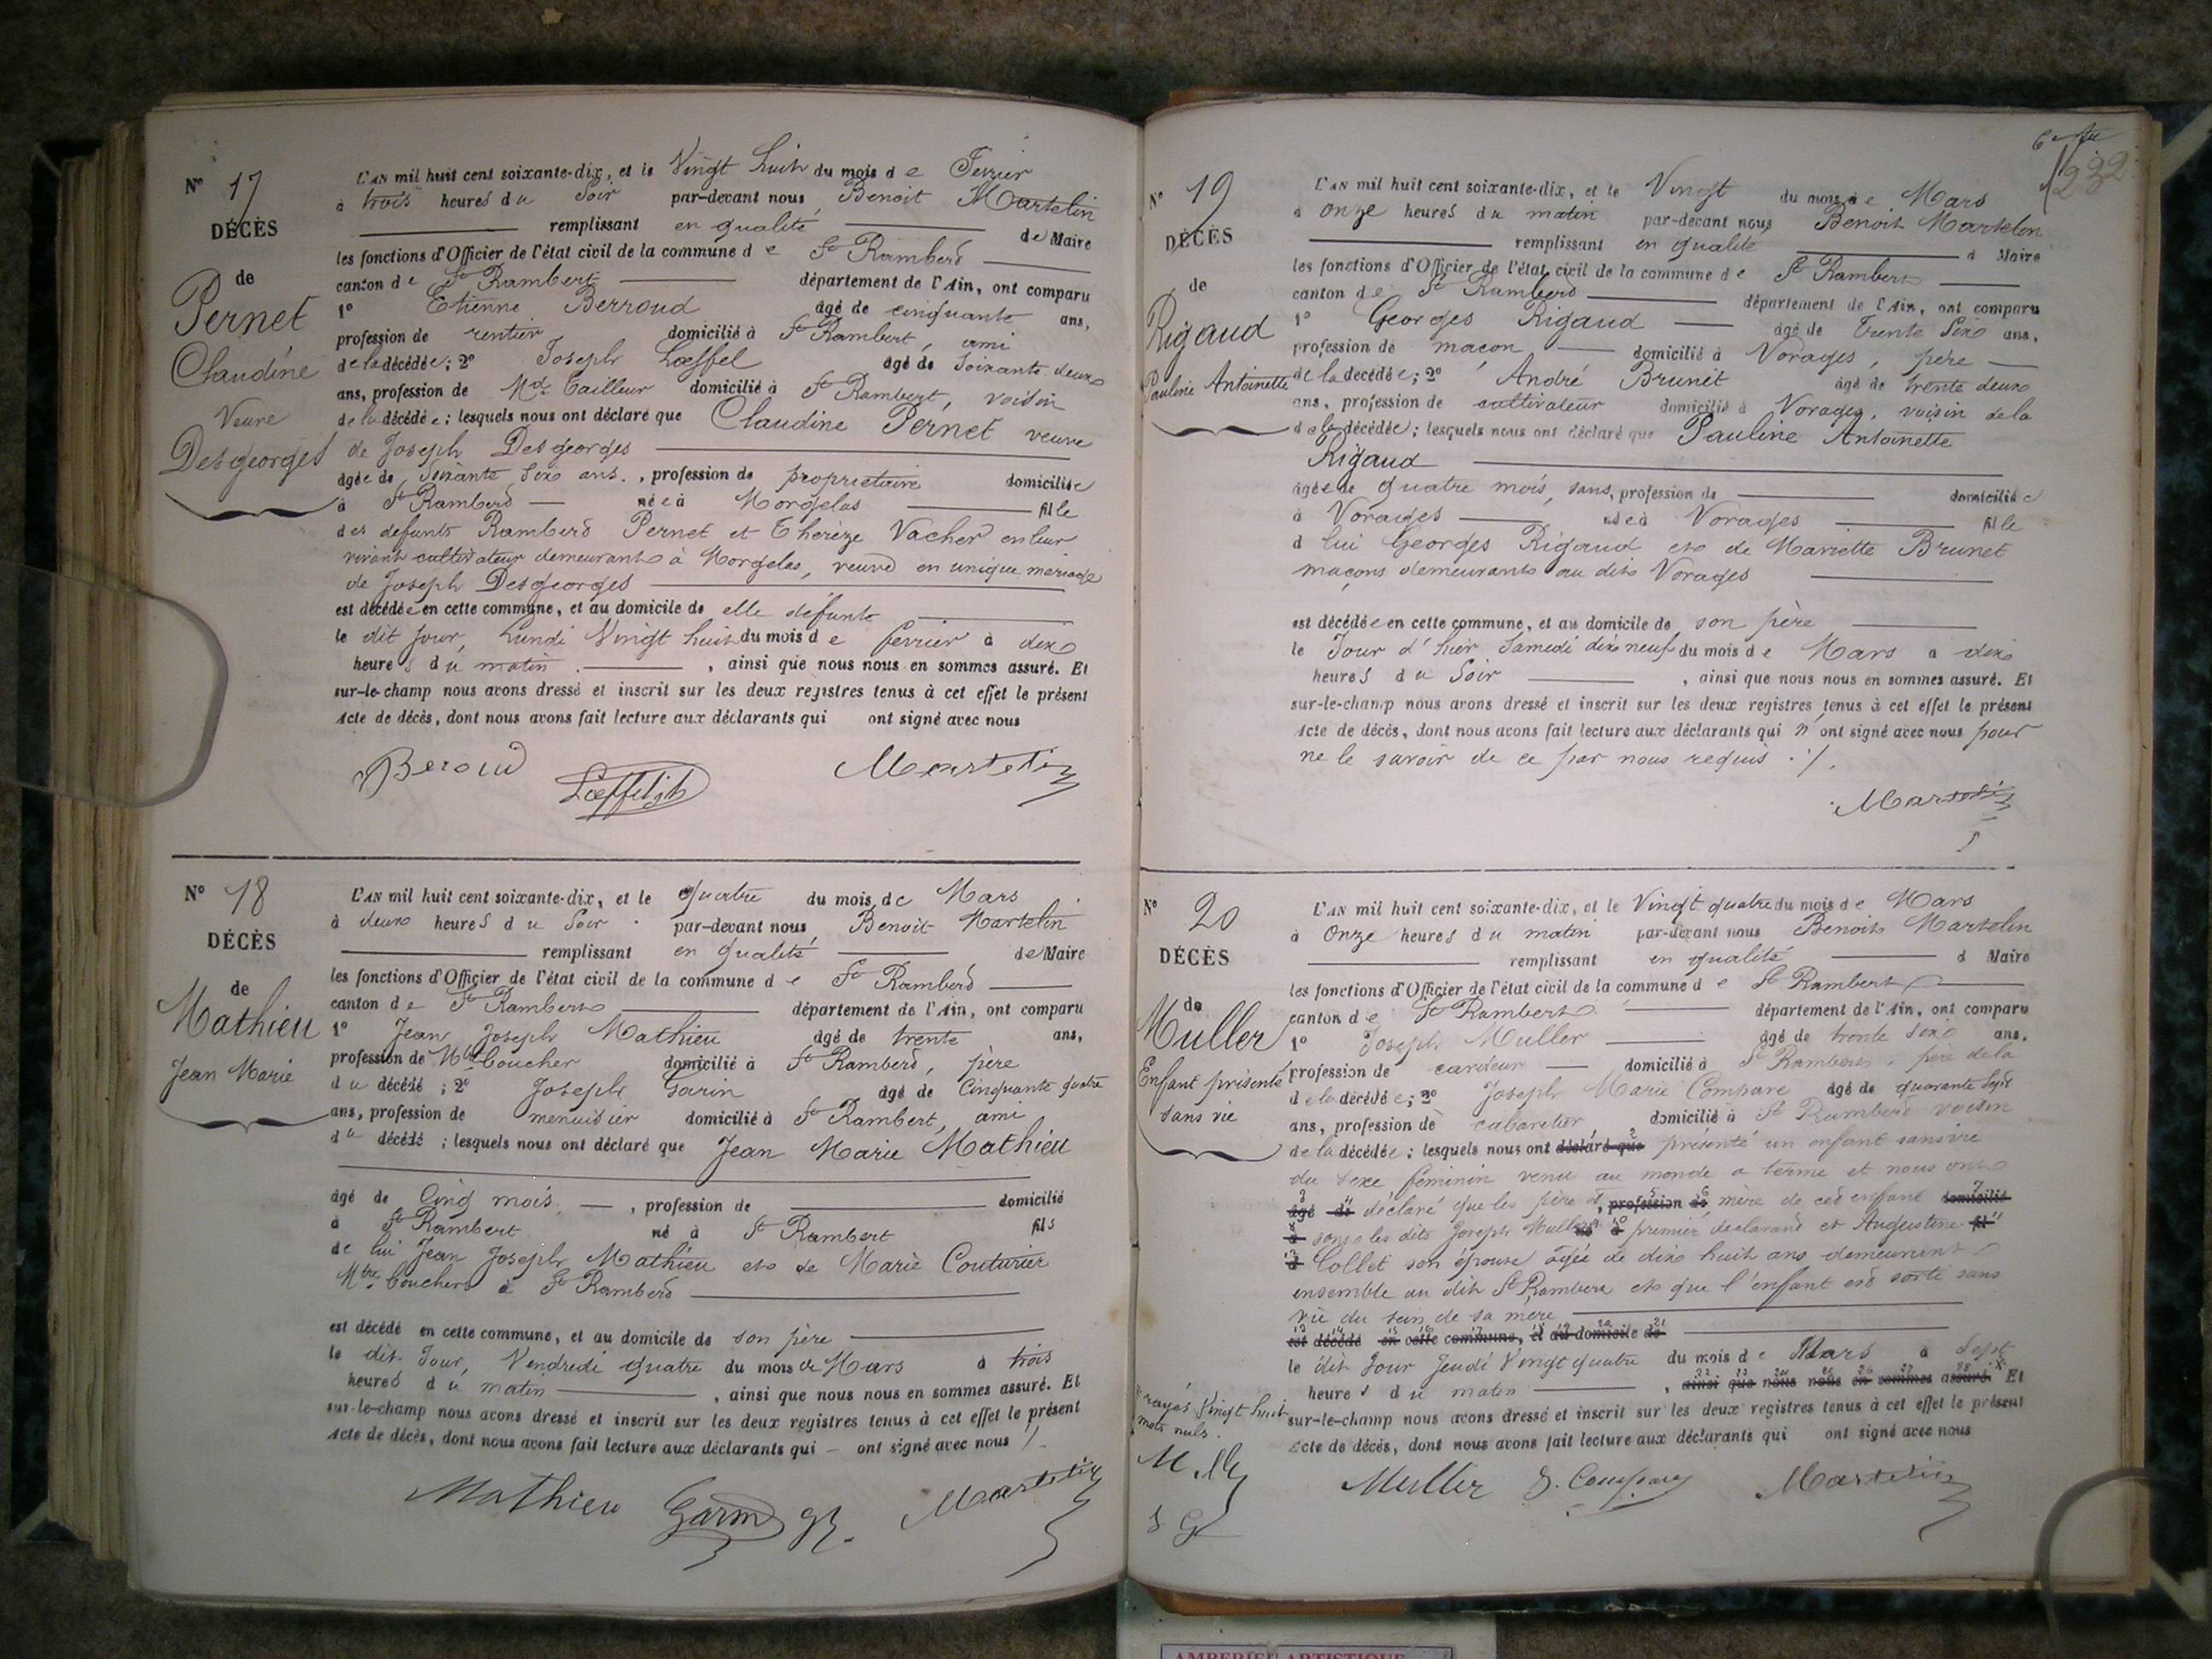 N° 17
DÉCÈS
de
Pernet
Claudine
Veuve
Desgeorges
L'AN mil huit cent soixante-dix, et le Vingt huit du mois de Fevrier
à trois heures du Soir par-devant nous Benoit Martelin
remplissant en qualité de Maire
les fonctions d'Officier de l'état civil de la commune de St Rambert
canton de St Rambert département de l'Ain, ont comparu
1° Etienne Berroud âgé de cinquante ans,
profession de rentier domicilié à St Rambert, ami
de la décédée; 2° Joseph Lœffel âgé de Soixante deux
ans, profession de Md Tailleur domicilié à St Rambert, voisin
de la décédée; lesquels nous ont déclaré que Claudine Pernet veuve
de Joseph Desgeorges
âgée de Soixante six ans, profession de propriétaire domiciliée
à St Rambert née à Morgelas fille
des defunts Rambert Pernet et Thérèze Vacher en leur
vivant cultivateur demeurant à Morgelas, veuve en unique mariage
de Joseph Desgeorges
est décédée en cette commune, et au domicile de elle défunte
le dit jour, Lundi Vingt huit du mois de fevrier à dix
heures du matin, ainsi que nous nous en sommes assuré. Et
sur-le-champ nous avons dressé et inscrit sur les deux registres tenus à cet effet le présent
Acte de décès, dont nous avons fait lecture aux déclarants qui ont signé avec nous
Beroud Lœffel Martelin
N° 18
DÉCÈS
de
Mathieu
Jean Marie
L'AN mil huit cent soixante-dix, et le quatre du mois de Mars
à deux heures du Soir par-devant nous Benoit Martelin
remplissant en qualité de Maire
les fonctions d'Officier de l'état civil de la commune de St Rambert
canton de St Rambert département de l'Ain, ont comparu
1° Jean Joseph Mathieu âgé de trente ans,
profession de Mtre Coucher domicilié à St Rambert, père
du décédé; 2° Joseph Garin âgé de Cinquante quatre
ans, profession de menuisier domicilié à St Rambert, ami
du décédé; lesquels nous ont déclaré que Jean Marie Mathieu
âgé de Cinq mois, profession de domicilié
à St Rambert né à St Rambert fils
de lui Jean Joseph Mathieu et de Marie Couturier
Mtre Couchers à St Rambert
est décédé en cette commune, et au domicile de son père
le dit Jour, Vendredi quatre du mois de Mars à trois
heures du matin, ainsi que nous nous en sommes assuré. Et
sur-le-champ nous avons dressé et inscrit sur les deux registres tenus à cet effet le présent
Acte de décès, dont nous avons fait lecture aux déclarants qui ont signé avec nous
Mathieu Garin Martelin
232
N° 19
DÉCÈS
de
Rigaud
Pauline Antoinette
L'AN mil huit cent soixante-dix, et le Vingt du mois de Mars
à onze heures du matin par-devant nous Benoit Martelin
remplissant en qualité d Maire
les fonctions d'Officier de l'état civil de la commune de St Rambert
canton de St Rambert département de l'Ain, ont comparu
1° Georges Rigaud âgé de Trente Six ans,
profession de maçon domicilié à Vorages, père
de la décédée; 2° André Brunet âgé de trente deux
ans, profession de cultivateur domicilié à Vorages, voisin de la
de la décédée; lesquels nous ont déclaré que Pauline Antoinette
Rigaud
âgée de quatre mois, sans, profession de domiciliée
à Vorages née à Vorages fille
d lui Georges Rigaud et de Mariette Brunet
maçons demeurants au dit Vorages
est décédée en cette commune, et au domicile de son père
le Jour d'hier Samedi dix neuf du mois de Mars à dix
heures du Soir, ainsi que nous nous en sommes assuré. Et
sur-le-champ nous avons dressé et inscrit sur les deux registres tenus à cet effet le présent
Acte de décès, dont nous avons fait lecture aux déclarants qui n'ont signé avec nous pour
ne le savoir de ce par nous requis
Martelin
N° 20
DÉCÈS
de
Muller
Enfant présenté
sans vie
L'AN mil huit cent soixante-dix, et le Vingt quatre du mois de Mars
à Onze heures du matin par-devant nous Benoit Martelin
remplissant en qualité d Maire
les fonctions d'Officier de l'état civil de la commune de St Rambert
canton de St Rambert département de l'Ain, ont comparu
1° Joseph Muller âgé de trente six ans,
profession de cardeur domicilié à St Rambert, père de la
de la décédée; 2° Joseph Marie Compare âgé de quarante Sept
ans, profession de cabaretier, domicilié à St Rambert voisin
de la décédée; lesquels nous ont déclaré que présenté un enfant sans vie
du sexe féminin venu au monde a terme et nous ont
âgé de déclaré que les père et, profession de mère de cet enfant domicilié
à sont les dits Joseph Muller né à premier declarant et Augustine fil
d Collet son épouse âgée de dix huit ans demeurent
ensemble au dit St Rambert et que l'enfant est sorti sans
vie du sein de sa mère
est décédé en cette commune, et au domicile de
le dit Jour Jeudi Vingt quatre du mois de Mars à Sept
heures du matin, ainsi que nous nous en sommes assuré. Et
sur-le-champ nous avons dressé et inscrit sur les deux registres tenus à cet effet le présent
Acte de décès, dont nous avons fait lecture aux déclarants qui ont signé avec nous
rayés Vingt huit
mots nuls.
Muller J. Compare Martelin
AMBERIEU ARTISTIQUE